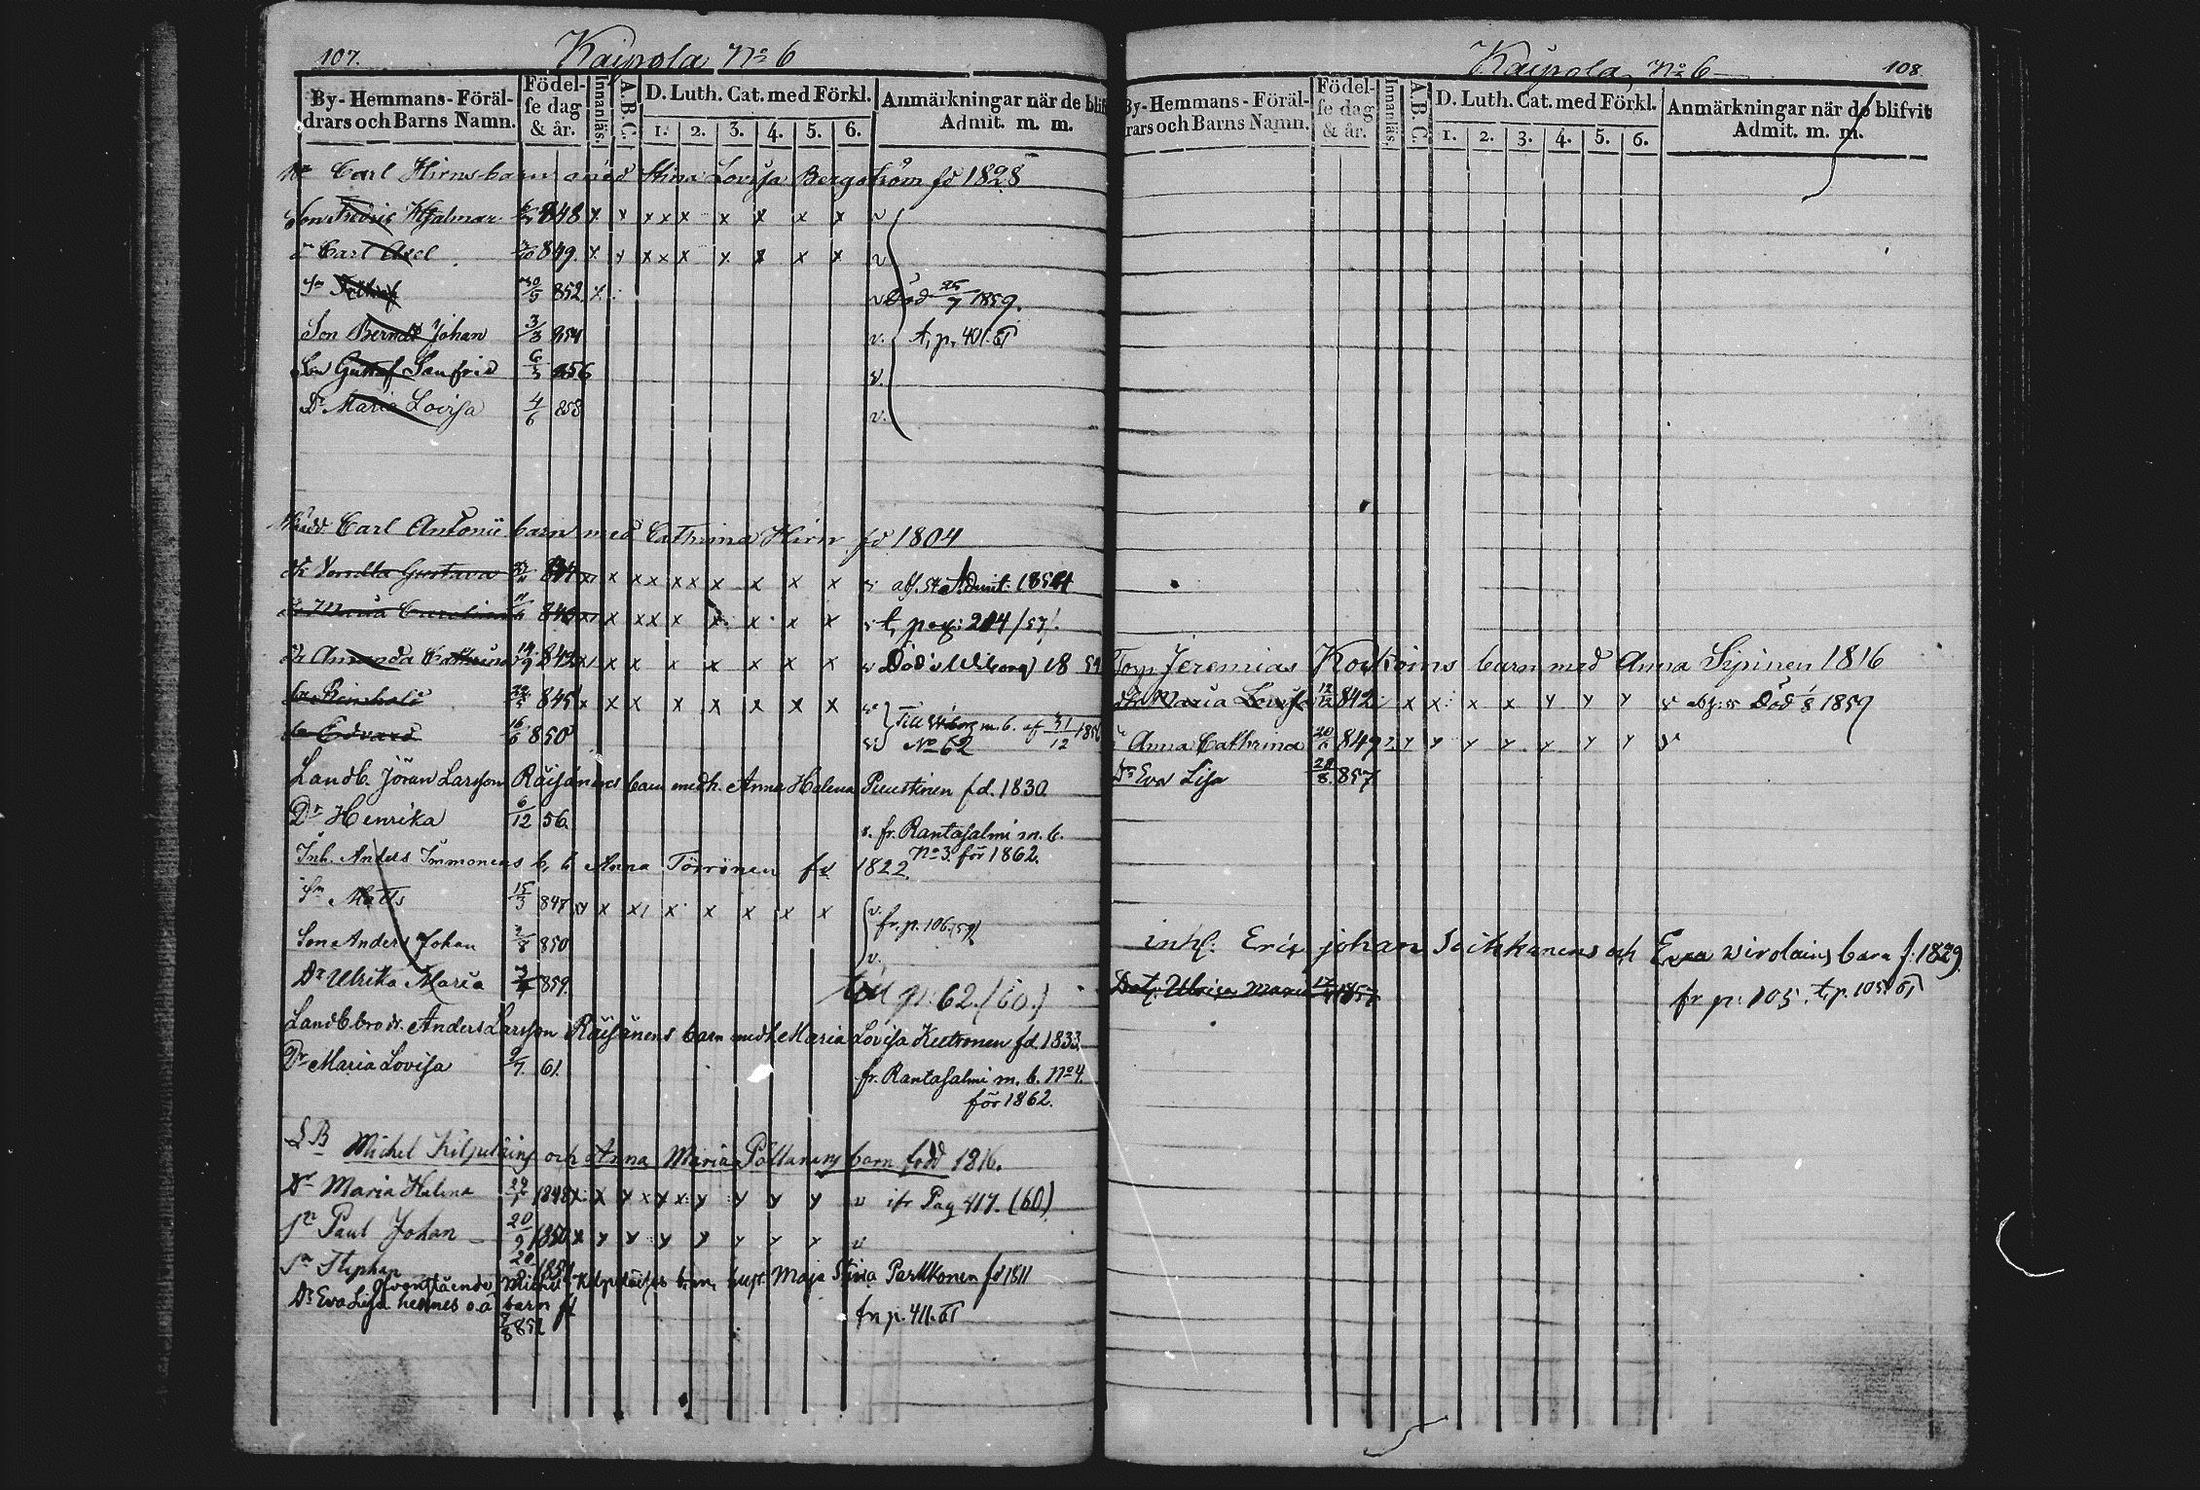 107.
Kaipola No 6
By-Hemmans-Föräl-
drars och Barns Namn.
Födel-
se dag
& år.
Innanläs.
A.B.C.
D. Luth. Cat. med Förkl.
1. 2. 3. 4. 5. 6.
Anmärkningar när de blif
Admit. m. m.
Carl Hirns barn med Stina Lovisa Bergström fd 1828
Son Fredric Hjalmar 848 x x x x x x x x x v
Carl Axel 849. x x x x x x x x v
852 x v Död 25/7 1859.
Son Berndt Johan 3/3 854 v. t. p. 401. 61
Son Gustaf Sanfrid 6/3 856 v.
Dr Maria Lovisa 4/6 858 v.
Carl Antonii barn med Cathrina Hirn fd 1804
Gustava x x x x x x x x Admit. 1854
Maria Carolina x x x x x x x t. pag: 204/57.
Dr Amanda Cathrina 19/9 842 x x x x x x x x v Död i Wiborg 18
Reinhold 845 x x x x x x x x v
Edvard 16/6 850 Till Wiborg m. b. af 31/12 185
No 62
Landb. Jöran Larsson Räisänens barn med h. Anna Helena Puustinen f d. 1830
Dr Henrika 6/12 56. v. fr. Rantasalmi m. b.
No 3. för 1862.
Inh. Anders Immonens b. Anna Törrönen fd 1822.
Sn Matts 15/3 847 x x x x x x x v. fr. p. 106. (59)
Son Anders Johan 850 v.
Dr Ulrika Maria 859. till p. 62. (60.)
Landb. brodr. Anders Larsson Räisänens barn med h. Maria Lovisa Kettonen fd. 1833
Dr Maria Lovisa 9/7. 61. fr. Rantasalmi m. b. No 4.
för 1862.
LB Michel Kilpeläins och Anna Maria Pöllänens barn född 1816.
Dr Maria Helena 29/1 1848 x x x x x x x x x v ifr Pag 417. (60)
Sn Paul Johan 20/9 1850 x x x x x x x x v
Sn Stephan
Ofvanstående Michel Kilpeläins barn, hust. Maja Stina Parkkonen fd 1811
Dr Eva Lisa hennes o.ä. barn fr p. 411. 61
852
108
Kaipola No 6
By-Hemmans-Föräl-
drars och Barns Namn.
Födel-
se dag
& år.
Innanläs.
A.B.C.
D. Luth. Cat. med Förkl.
1. 2. 3. 4. 5. 6.
Anmärkningar när de blifvit
Admit. m. m.
Torp. Jeremias barn med Anna Sipinen 1816
Dr Maria Lovisa 12/12 842 x x x x y y y v Död 1/8 1859
Anna Cathrina 849 y y y y x y y v
Dr Eva Lisa 28/8. 857
inh. Erik johan barn f. 1829
Dot. Ulrica Maria 1857 fr p: 105. t. p. 105. 61